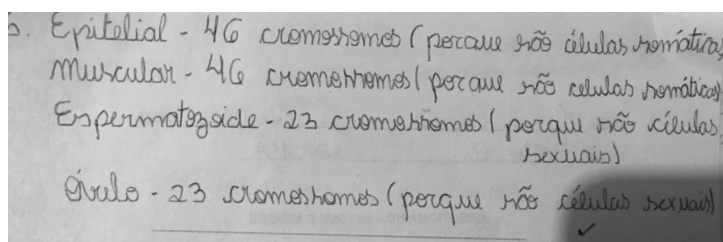 5. Epitelial - 46 cromossomos (porque são células somáticas
Muscular - 46 cromossomos (porque são celulas somáticas)
Espermatozoide - 23 cromossomos (porque são células
sexuais)
Óvulo - 23 cromossomos (porque são células sexuais)